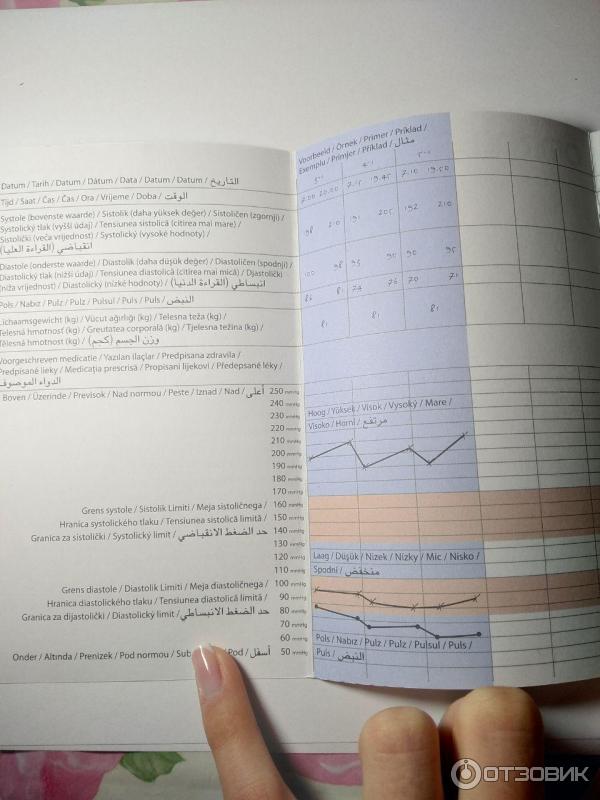 Voorbeeld / Örnek / Primer / Príklad /
Exemplu / Primjer / Příklad / مثال
Datum / Tarih / Datum / Dátum / Data / Datum / Datum / التاريخ
7.00 20.00 7.15 19.45 7.10 19.50
Tijd / Saat / Čas / Čas / Ora / Vrijeme / Doba / الوقت
Systole (bovenste waarde) / Sistolik (daha yüksek değer) / Sistoličen (zgornji) /
Systolický tlak (vyšší údaj) / Tensiunea sistolică (citirea mai mare) /
Sistolički (veća vrijednost) / Systolický (vysoké hodnoty) /
انقباضي (القراءة العليا)
198 210 191 205 192 210
Diastole (onderste waarde) / Diastolik (daha düşük değer) / Diastoličen (spodnji) /
Diastolický tlak (nižší údaj) / Tensiunea diastolică (citirea mai mică) / Djastolički
(niža vrijednost) / Diastolický (nízké hodnoty) / انبساطي (القراءة الدنيا)
100 98 95 90 90 95
Pols / Nabız / Pulz / Pulz / Pulsul / Puls / Puls / النبض
86 81 74 76 70 71
Lichaamsgewicht (kg) / Vücut ağırlığı (kg) / Telesna teža (kg) /
Telesná hmotnosť (kg) / Greutatea corporală (kg) / Tjelesna težina (kg) /
Tělesná hmotnost (kg) / وزن الجسم (كجم)
81 81 81
Voorgeschreven medicatie / Yazılan ilaçlar / Predpisana zdravila /
Predpísané lieky / Medicaţia prescrisă / Propisani lijekovi / Předepsané léky /
الدواء الموصوف
Boven / Üzerinde / Previsok / Nad normou / Peste / Iznad / Nad / أعلى 250 mmHg
240 mmHg
Hoog / Yüksek / Visok / Vysoký / Mare /
230 mmHg
Visoko / Horní / مرتفع
220 mmHg
210 mmHg
200 mmHg
190 mmHg
180 mmHg
170 mmHg
Grens systole / Sistolik Limiti / Meja sistoličnega / 160 mmHg
Hranica systolického tlaku / Tensiunea sistolică limită / 150 mmHg
Granica za sistolički / Systolický limit / حد الضغط الانقباضي 140 mmHg
130 mmHg
Laag / Düşük / Nizek / Nízky / Mic / Nisko /
120 mmHg
Spodní / منخفض
110 mmHg
Grens diastole / Diastolik Limiti / Meja diastoličnega / 100 mmHg
Hranica diastolického tlaku / Tensiunea diastolică limită / 90 mmHg
Granica za dijastolički / Diastolický limit / حد الضغط الانبساطي 80 mmHg
70 mmHg
60 mmHg
Pols / Nabız / Pulz / Pulz / Pulsul / Puls /
Onder / Altında / Prenizek / Pod normou / Sub Pod / أسفل 50 mmHg
Puls / النبض
ОТЗОВИК